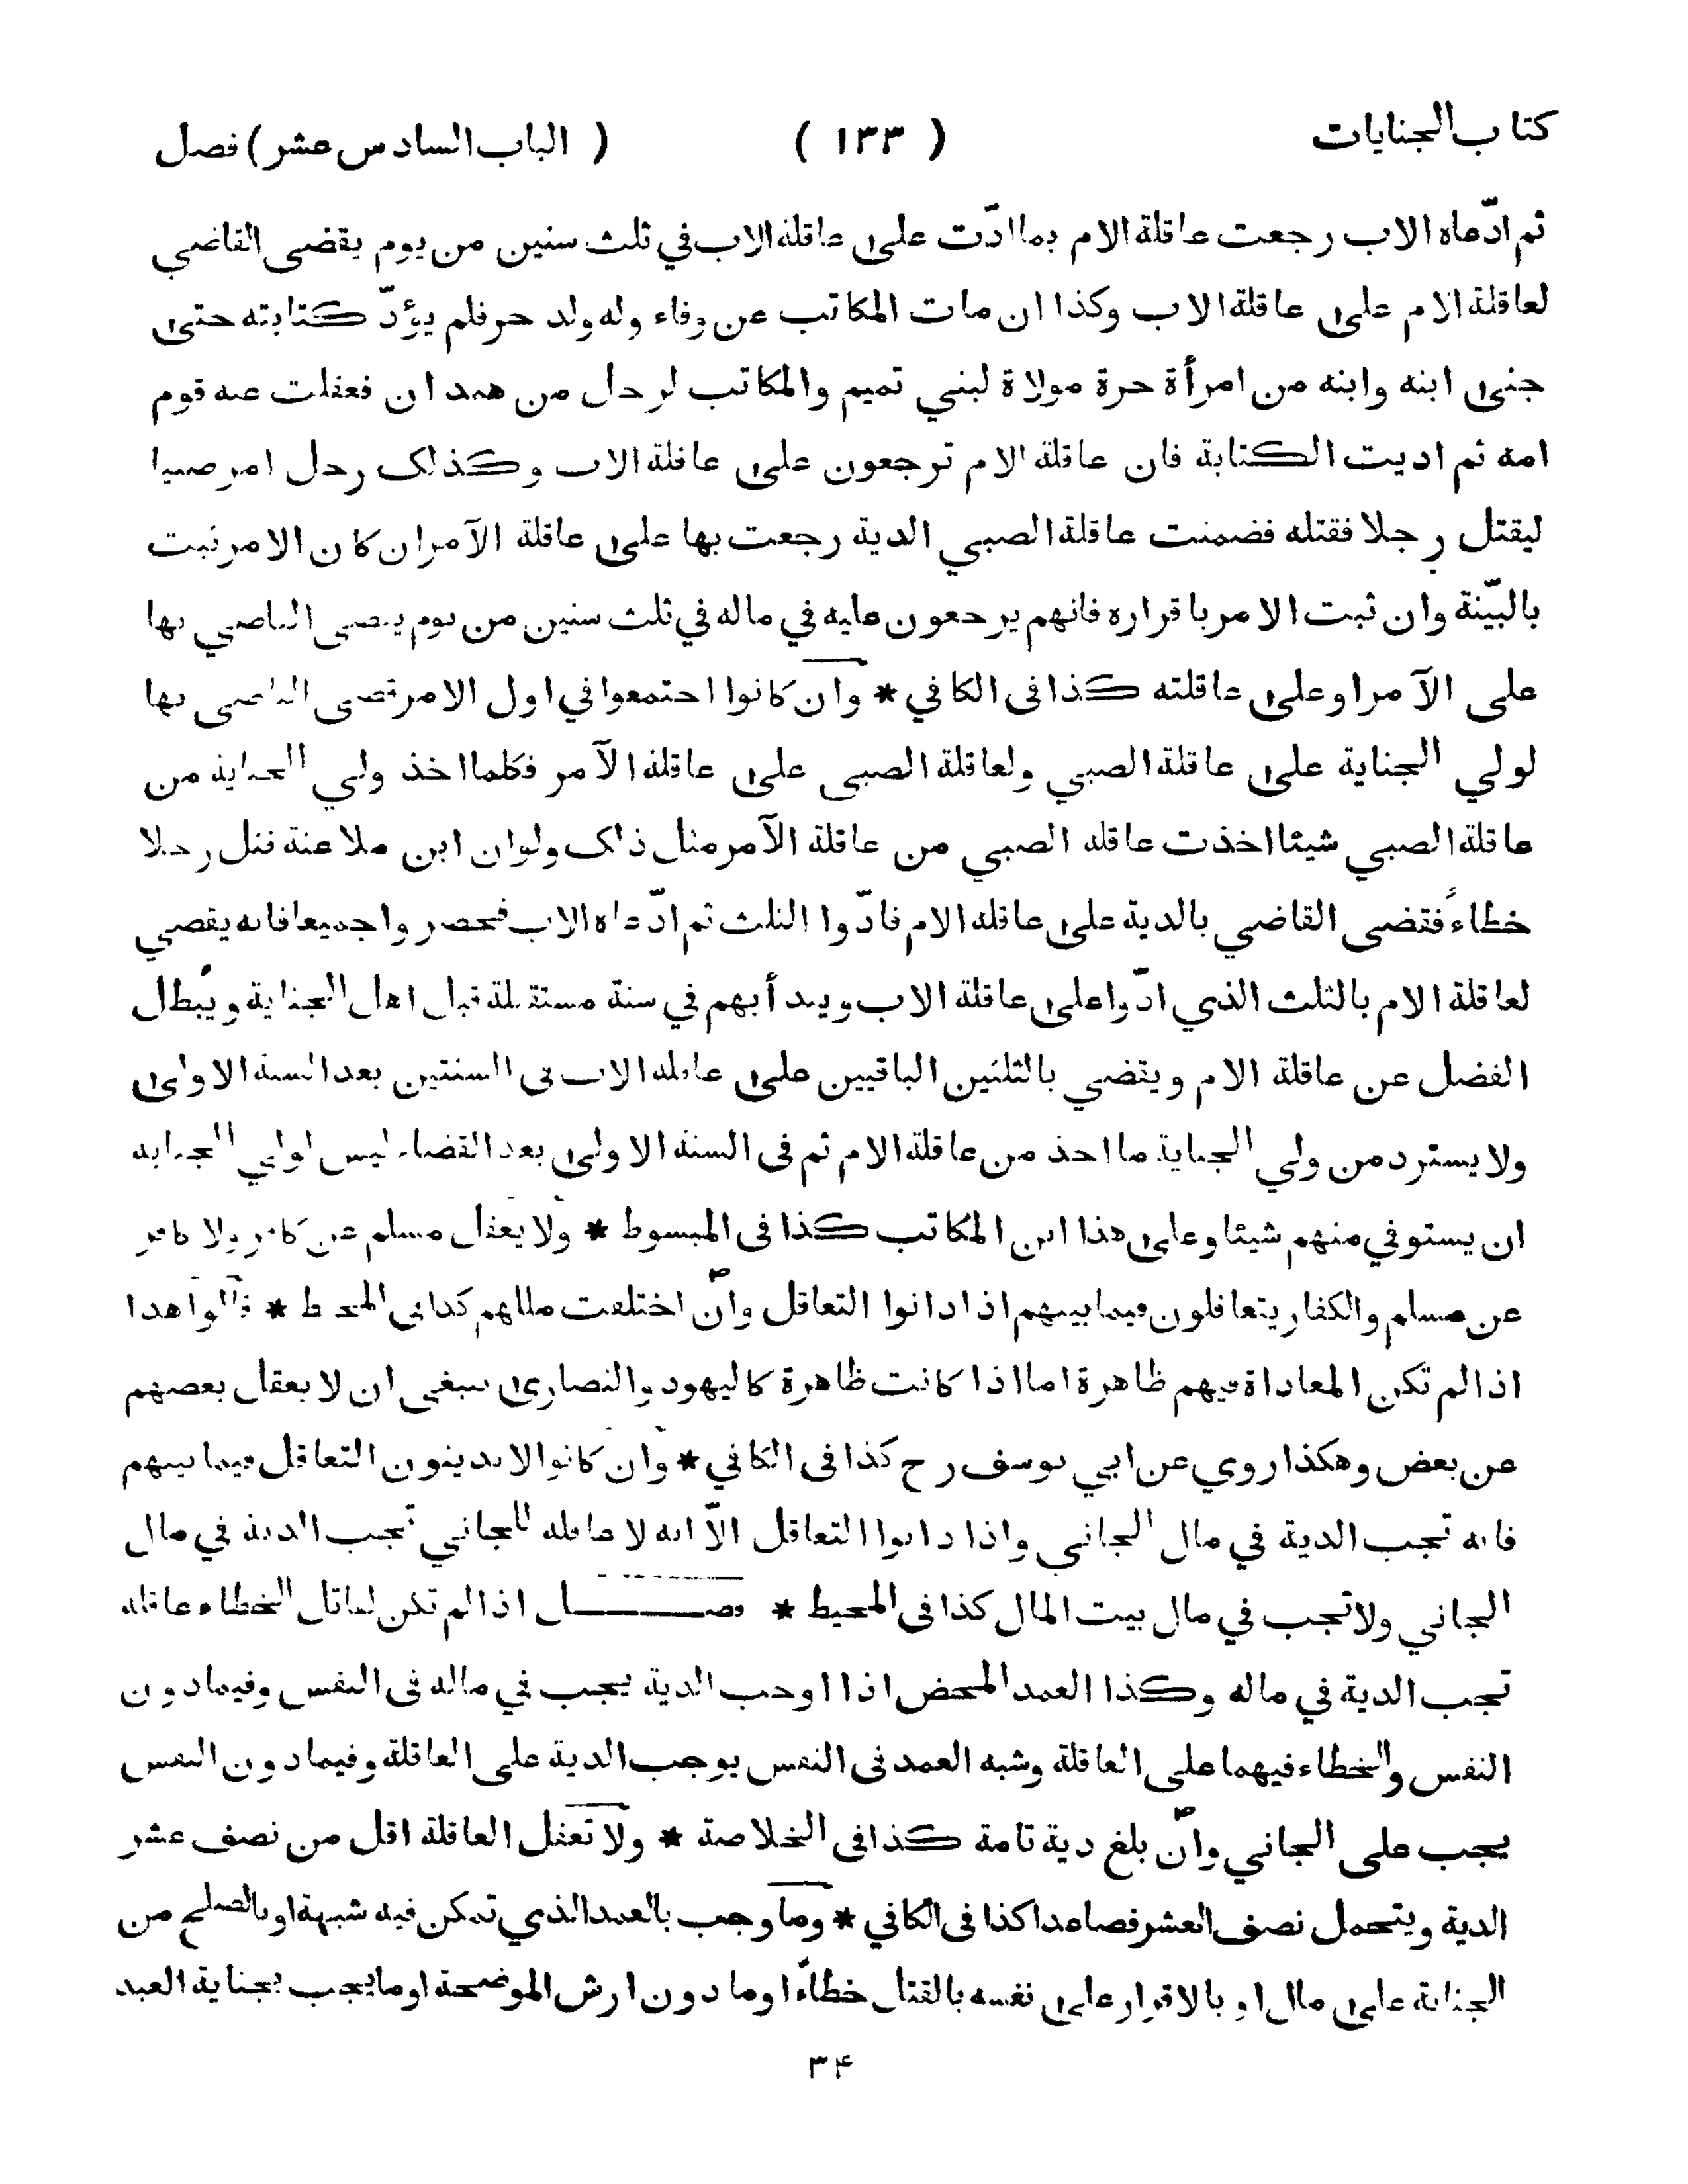 كتاب الجنايات ( ١٣٣ ) ( الباب السادس عشر ) فصل
ثم ادّعاه الاب رجعت عاقلة الام بما ادّت على عاقلة الاب في ثلث سنين من يوم يقضى القاضي
لعاقلة الام على عاقلة الاب وكذا ان مات المكاتب عن وفاء وله ولد حر فلم يؤدّ كتابته حتى
جنى ابنه وابنه من امرأة حرة مولاة لبني تميم والمكاتب لرجل من همدان فعقلت عنه قوم
امه ثم اديت الكتابة فان عاقلة الام ترجعون على عاقلة الاب وكذلك رجل امر صبيا
ليقتل رجلا فقتله فضمنت عاقلة الصبي الدية رجعت بها على عاقلة الآمر ان كان الامر ثبت
بالبيّنة وان ثبت الامر باقراره فانهم يرجعون عليه في ماله في ثلث سنين من يوم يقضى القاضي بها
على الآمر او على عاقلته كذا فى الكافي * وان كانوا اجتمعوا في اول الامر قضى القاضى بها
لولي الجناية على عاقلة الصبي ولعاقلة الصبى على عاقلة الآمر فكلما اخذ ولي الجناية من
عاقلة الصبي شيئا اخذت عاقلة الصبي من عاقلة الآمر مثل ذلك ولو ان ابن ملاعنة قتل رجلا
خطاءً فقضى القاضي بالدية على عاقلة الام فادّوا الثلث ثم ادّعاه الاب فحضروا جميعا فانه يقضي
لعاقلة الام بالثلث الذي ادّوا على عاقلة الاب ويبدأ بهم في سنة مستقبلة قبل اهل الجناية ويبطل
الفضل عن عاقلة الام ويقضي بالثلثين الباقيين على عاقلة الاب فى السنتين بعد السنة الاولى
ولا يسترد من ولي الجناية ما اخذ من عاقلة الام ثم فى السنة الاولى بعد القضاء ليس لولي الجناية
ان يستوفي منهم شيئا وعلى هذا ابن المكاتب كذا فى المبسوط * ولا يعقل مسلم عن كافر ولا كافر
عن مسلم والكفار يتعاقلون فيما بينهم اذا دانوا التعاقل وان اختلفت مللهم كذا فى المحيط * قالوا هذا
اذا لم تكن المعاداة فيهم ظاهرة اما اذا كانت ظاهرة كاليهود والنصارى ينبغي ان لا يعقل بعضهم
عن بعض وهكذا روي عن ابي يوسف رح كذا فى الكافي * وان كانوا لا يدينون التعاقل فيما بينهم
فانه تجب الدية في مال الجاني واذا دانوا التعاقل الّا انه لا عاقلة للجاني تجب الدية في مال
الجاني ولا تجب في مال بيت المال كذا فى المحيط * فصـــــل اذا لم تكن لقاتل الخطاء عاقلة
تجب الدية في ماله وكذا العمد المحض اذا اوجب الدية يجب في ماله فى النفس وفيما دون
النفس والخطاء فيهما على العاقلة وشبه العمد فى النفس يوجب الدية على العاقلة وفيما دون النفس
يجب على الجاني وان بلغ دية تامة كذا فى الخلاصة * ولا تعقل العاقلة اقل من نصف عشر
الدية ويتحمل نصف العشر فصاعدا كذا فى الكافي * وما وجب بالعمد الذي تمكن فيه شبهة او بالصلح من
الجناية على مال او بالاقرار على نفسه بالقتل خطاءً او ما دون ارش الموضحة او ما يجب بجناية العبد
٣۴